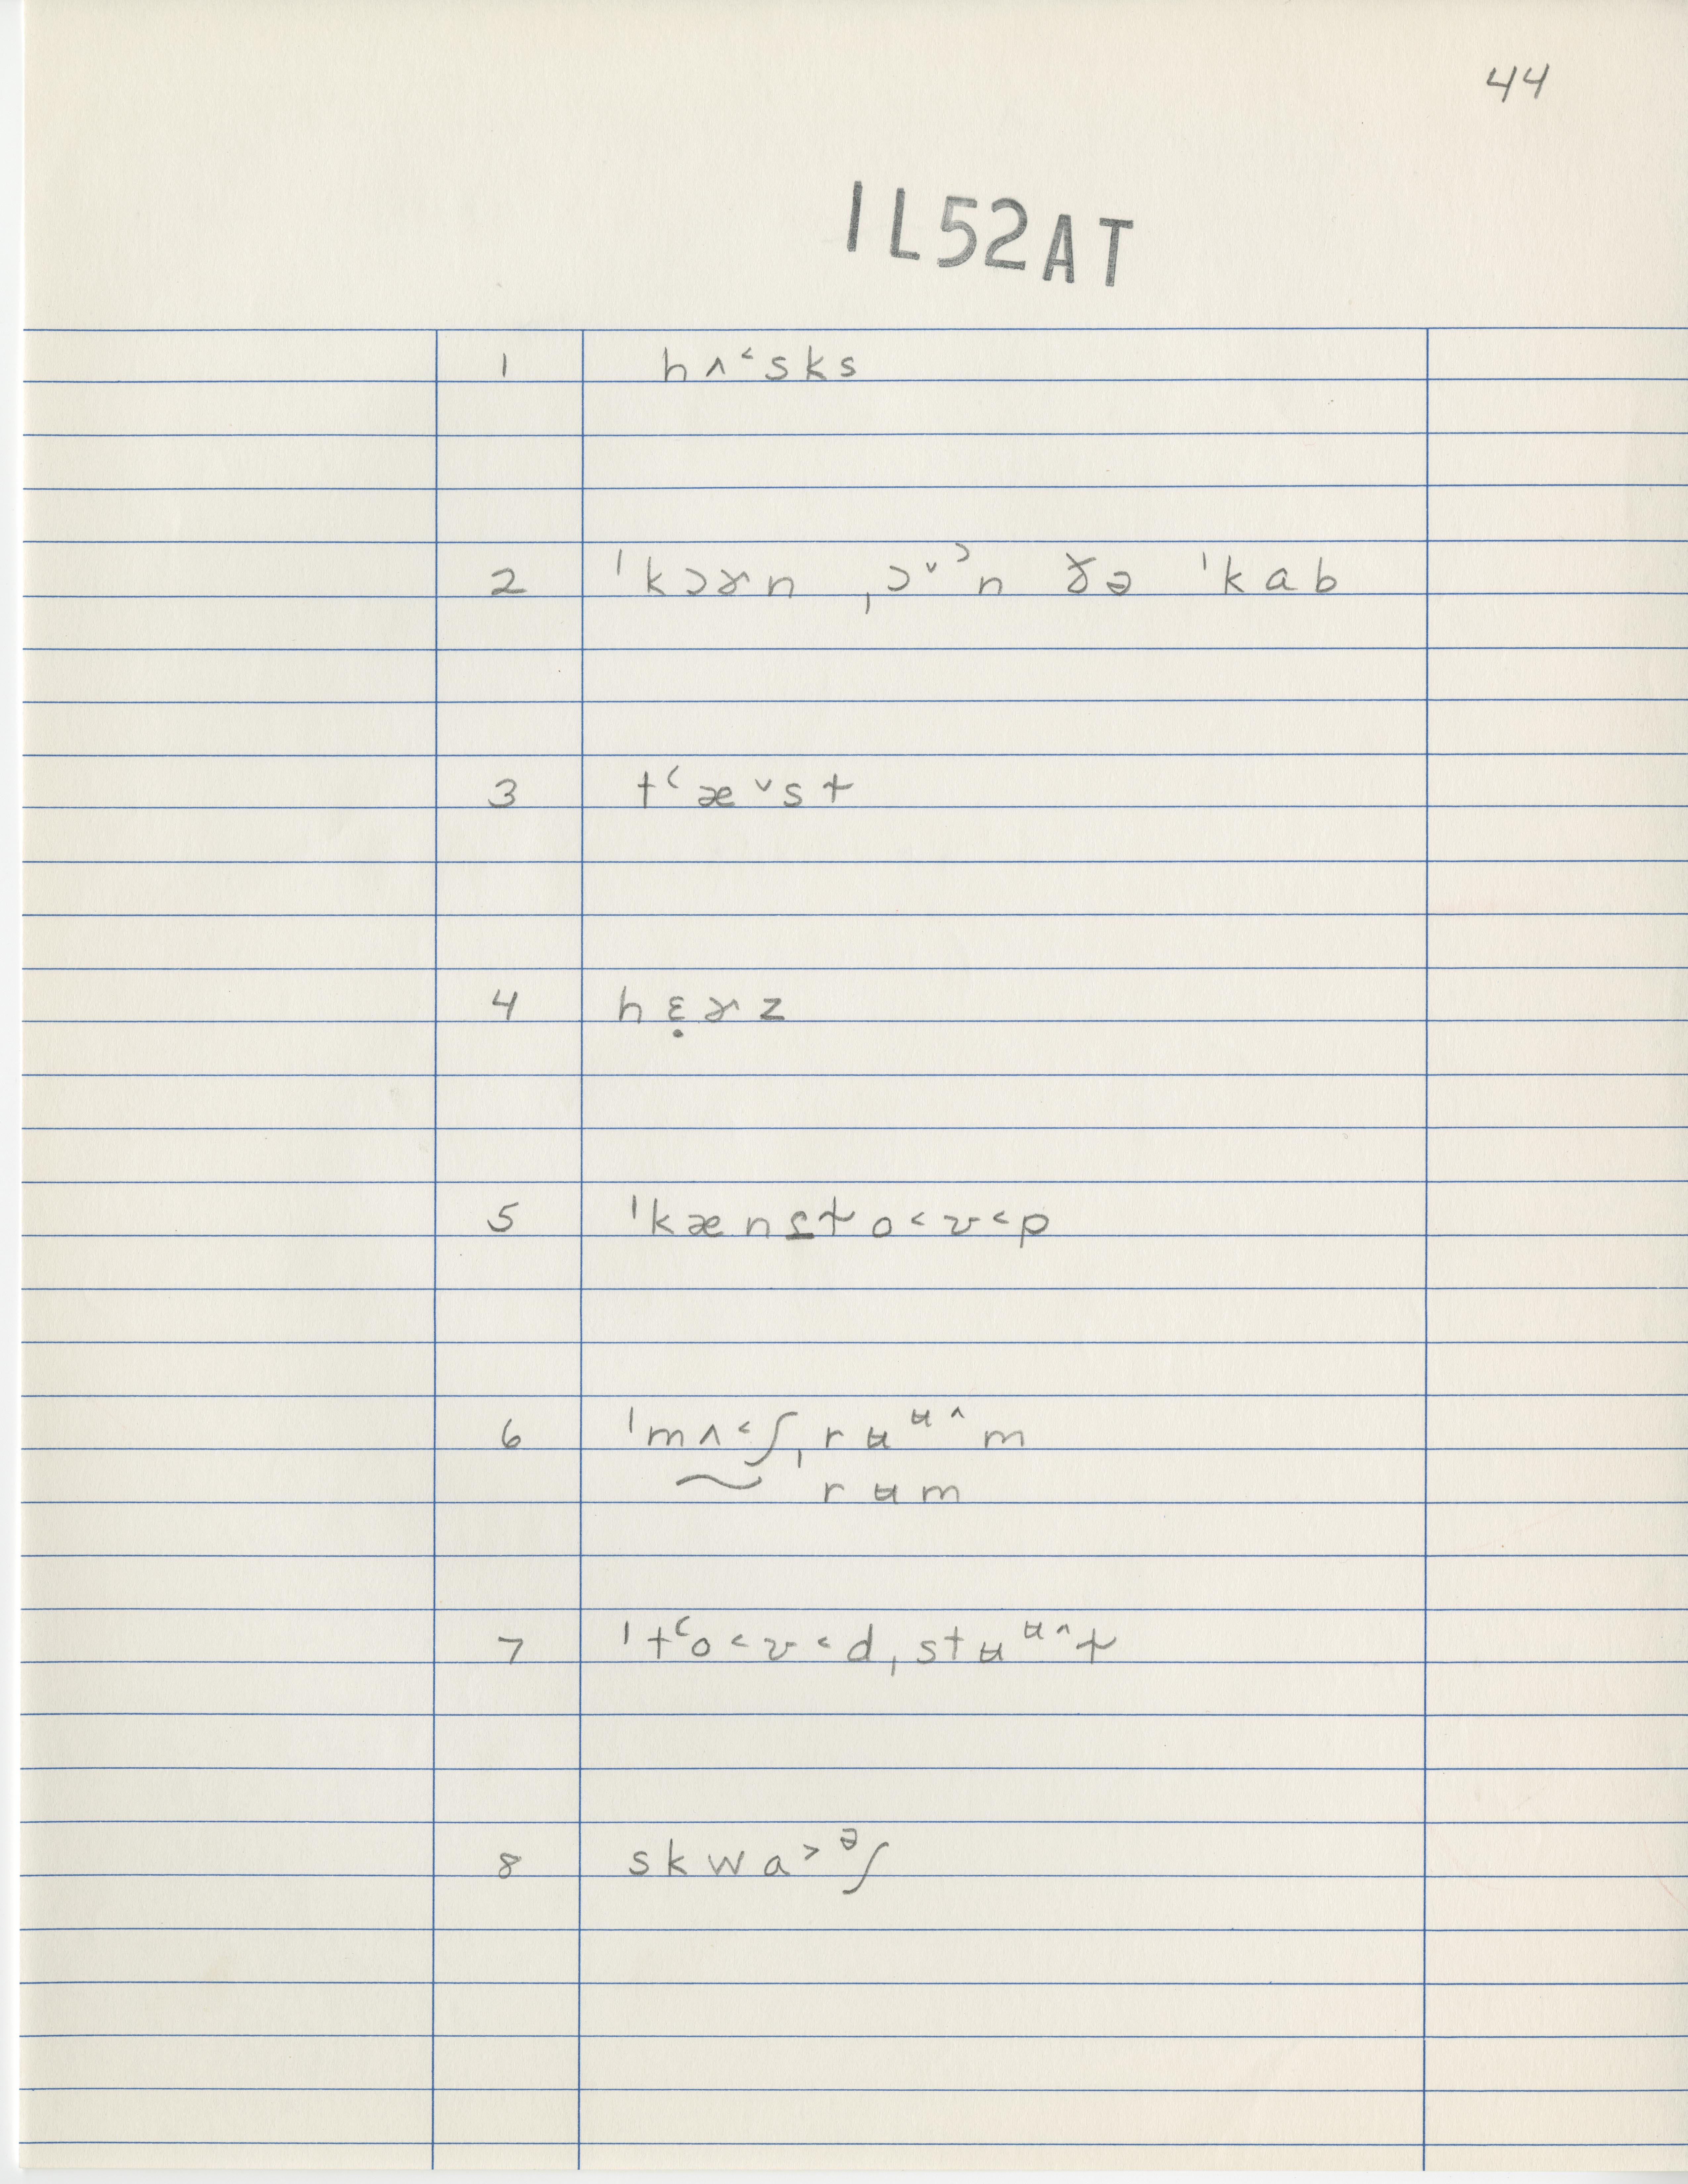 44
IL52AT
1 hʌ˂sks
2 ˈkɔɚn ˌɔ˅ᵓn ɤə ˈkab
3 tʻæ˅st
4 hɛ̣ɚz
5 ˈkæns̱t̴o˂ʊ˂p
6 ˈmʌ˂ʃˌrʉʉ˄m
~ rʉm
7 ˈtʻo˂ʊ˂dˌstʉʉ˄t̴
8 skwa˃ᵊʃ